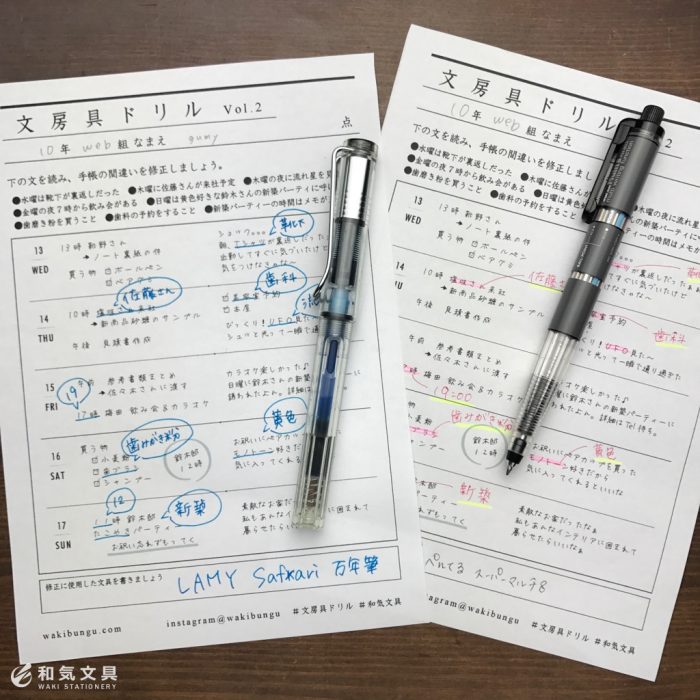 文房具ドリル Vol.2
10年 web 組なまえ gumy 点
下の文を読み、手帳の間違いを修正しましょう。
●水曜は靴下が裏返しだった ●木曜に佐藤さんが来社予定 ●木曜の夜に流れ星を見
●金曜の夜7時から飲み会がある ●日曜は黄色好きな鈴木さんの新築パーティに呼
●歯磨き粉を買うこと ●歯科の予約をすること ●新築パーティーの時間はメモが
13
WED
13時 新野さん
→ノート裏紙の件
買う物 ロボールペン
靴下
が裏返しだった
出勤してすぐに気づいたけど
気をつけなきゃな〜
14
THU
佐藤さん
10時
来社
→新商品砂糖のサンプル
午後 見積書作成
歯科
予約
本屋
びっくり!UFO見た〜
シュッと光って一瞬で通り過
15
FRI
午前 参考書類まとめ
→佐々木さんに渡す
19
17時 梅田 飲み会&カラオケ
カラオケ楽しかった♪
日曜に鈴木さんの新築
誘われたよん。詳細は
16
SAT
買う物
小麦粉
歯みがき粉
歯ブラシ
シャンプー
鈴木邸
12時
黄色
お祝いにペアカップを
モノトーン好きだから
気に入ってくれると
17
SUN
12
11時 鈴木邸
新築
たこやきパーティー
お祝い忘れずもってく
素敵なお家だったなぁ
私もあんなインテリアに囲まれて
暮らせたらいいなぁ
修正に使用した文具を書きましょう
LAMY Safrari 万年筆
wakibungu.com instagram@wakibungu #文房具ドリル #和気文具
文房具ドリル
10年 web 組なまえ
下の文を読み、手帳の間違いを修正しま
●水曜は靴下が裏返しだった ●木曜に佐藤さんが来
●金曜の夜7時から飲み会がある ●日曜は黄色好きな
●歯磨き粉を買うこと ●歯科の予約をすること
13
WED
13時 新野さん
→ノート裏紙の件
買う物 ロボールペン
14
佐藤さん
10時
来社
→新商品砂糖のサンプル
午後 見積書作成
歯科
UFO見た〜
シュッと光って一瞬で通り過ぎた
参考書類まとめ
→佐々木さんに渡す
19:00
梅田 飲み会&カラオケ
カラオケ楽しかった♪
日曜に鈴木さんの新築パーティーに
誘われたよん。詳細はtel待ち。
小麦粉
歯みがき粉
シャンプー
鈴木邸
12時
黄色
お祝いにペアカップを買った
モノトーン好きだから
気に入ってくれるといいな
鈴木邸
新築
パーティー
忘れずもってく
素敵なお家だったなぁ
私もあんなインテリアに囲まれて
暮らせたらいいなぁ
ぺんてる スーパーマルチ8
instagram@wakibungu #文房具ドリル #和気文具
和気文具
WAKI STATIONERY